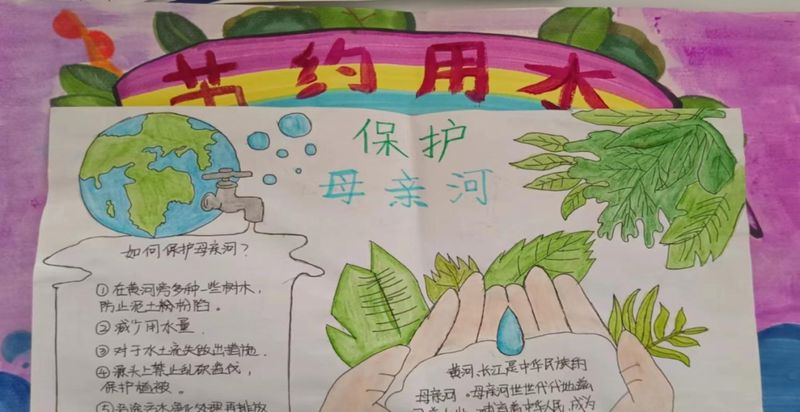 节约用水
保护
母亲河
如何保护母亲河?
①在黄河旁多种一些树木,
防止泥土粉粉陷。
②减少用水量.
③对于水土流失做出措施.
④源头上禁止乱砍滥伐,
保护植被。
⑤ 污水 处理再排放
黄河、长江是中华民族的
母亲河。母亲河世世代代地
中华人民,成为